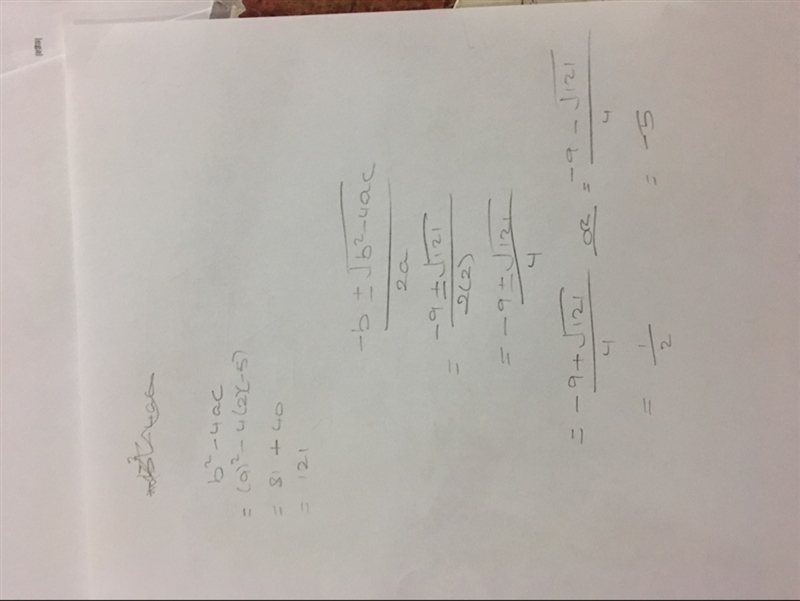 b² - 4ac
= (9)² - 4(2)(-5)
= 81 + 40
= 121
-b ± √b² - 4ac / 2a
= -9 ± √121 / 2(2)
= -9 ± √121 / 4
= -9 + √121 / 4 or = -9 - √121 / 4
= 1/2 = -5